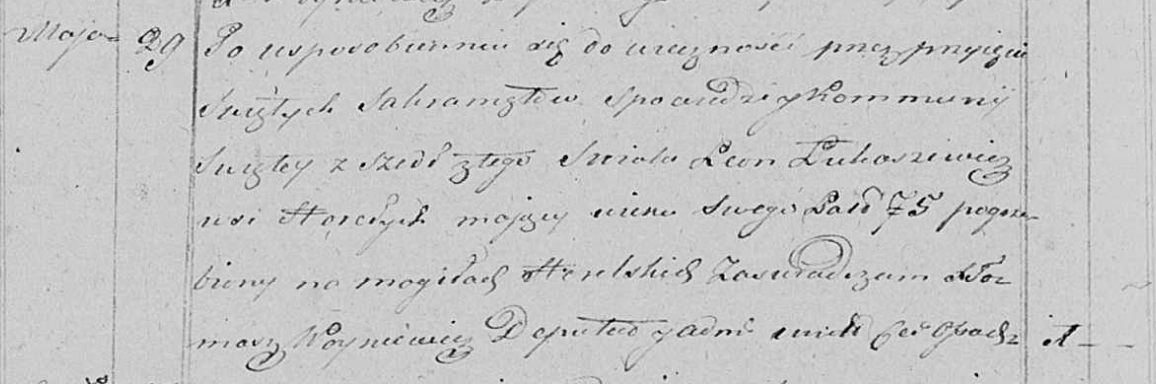 Maja 29 Po usposobieniu się do wieczności przez przyjęcie
Świętych Sakramętow Spowiedzi y Kommunij
Swiętey z szedł ztego Swiata Leon Łukaszewicz
wsi mający wieku swego Lat 75 pogrze-
biony na mogiłach Zaswiadczam
Woyniewicz Deputat y